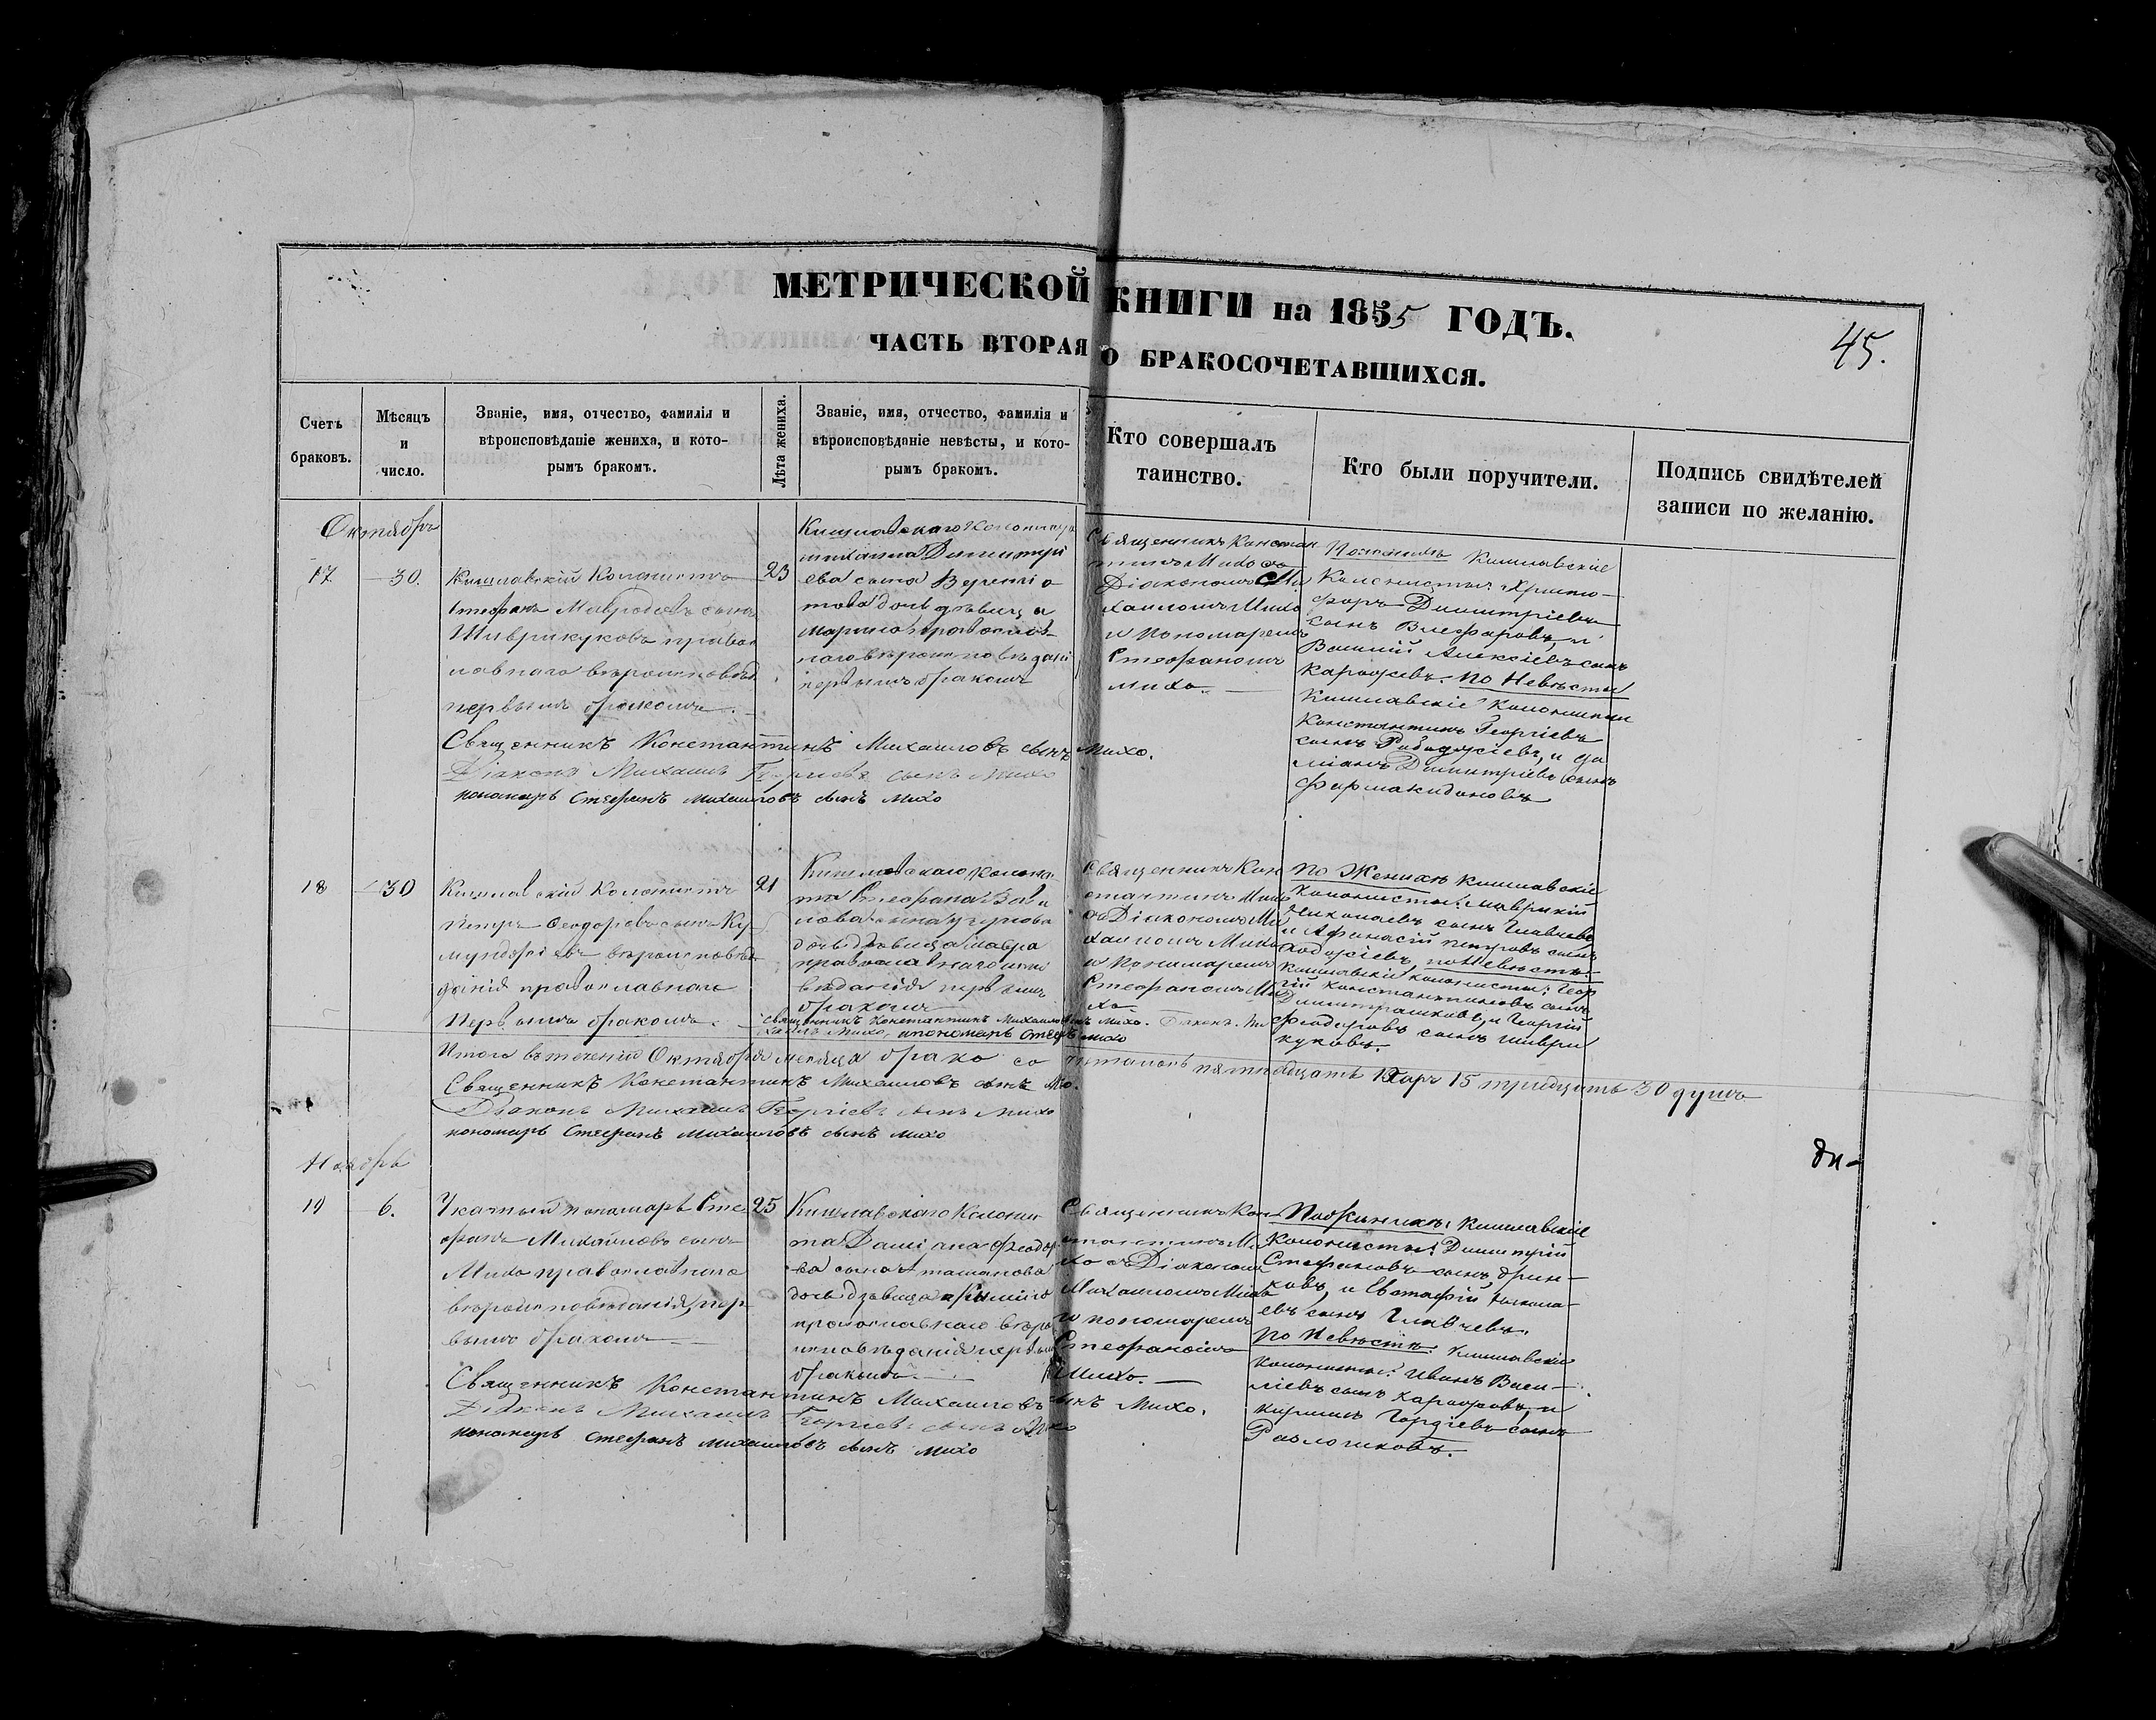 МЕТРИЧЕСКОЙ КНИГИ на 1855 ГОДЪ.
45.
ЧАСТЬ ВТОРАЯ О БРАКОСОЧЕТАВШИХСЯ.
Счетъ
браковъ.
Мѣсяцъ
и
число.
Званіе, имя, отчество, фамилія и
вѣроисповѣданіе жениха, и кото-
рымъ бракомъ.
Лѣта жениха.
Званіе, имя, отчество, фамилія и
вѣроисповѣданіе невѣсты, и кото-
рымъ бракомъ.
Кто совершалъ
таинство.
Кто были поручители.
Подпись свидѣтелей
записи по желанію.
Октябрь
17
30.
Кишлавскій Колонистъ
Стефанъ Мавродіевъ сынъ
Шиврикуковъ правос
лавнаго вѣроисповѣд
первымъ бракомъ.
23
Димитрі
ева сына
дочь дѣвица
Марина православ
наго вѣроисповѣдані
первымъ бракомъ
Священникъ Констан
тинъ Михо съ
Діакономъ Ми
хаиломъ Михо
и Пономаремъ
Стефаномъ
Михо.
Кишлавскіе
Колонисты: Христо-
форъ Димитріевъ
сынъ
Василій Алексіевъ сынъ
по Невѣсты
Кишлавскіе Колонисты
Константинъ Георгіевъ
сынъ и Да
міанъ Димитріевъ сынъ
Фармакидоновъ
Священникъ Константинъ Михаиловъ сынъ Михо.
Діаконъ Михаилъ Георгіевъ сынъ Михо
пономарь Стефанъ Михаиловъ сынъ Михо
18
30
Кишлавскій Колонистъ
Петръ Ѳеодоровъ сынъ Ку
вѣроисповѣ
данія православнаго
Первымъ бракомъ.
21
Кишлавскаго колонис
та Стефана
дочь дѣвица Мавра
православнаго испо
вѣданія первымъ
бракомъ
Священникъ Кон
стантинъ Михо
съ Діакономъ Ми
хаиломъ Михо
и Пономаремъ
Стефаномъ Ми
хо
По Женихѣ Кишлавскіе
Колонисты: Маврикій
Николаевъ сынъ Главчевъ
и Афанасій Петровъ сынъ
по Невѣстѣ:
Кишлавскіе колонисты: Геор
гій Константиновъ сынъ
Димитрашковъ, и Георгій
Ѳеодоровъ сынъ Шиври
куковъ.
Священникъ Константинъ Михаиловъ сынъ Михо. Діаконъ Ми
хаилъ Михо, и пономарь Стефанъ Михо
Итого въ теченіи Октября месяца брако со
четалось пятнадцать паръ 15 тридцать 30 душъ
Священникъ Константинъ Михаиловъ сынъ Михо.
Діаконъ Михаилъ Георгіевъ сынъ Михо
пономарь Стефанъ Михаиловъ сынъ Михо
Ноябрь
19
6.
Указный пономарь Сте
фанъ Михаиловъ сынъ
Михо православнаго
вѣроисповѣданія, пер
вымъ бракомъ
25
Кишлавскаго Колонис
та Даміана Ѳеодоро
ва сына
дочь дѣвица
православнаго вѣро
исповѣданія первымъ
бракомъ
Священникъ Кон
стантинъ Ми
хо съ Діакономъ
Михаиломъ Михо
и пономаремъ
Стефаномъ
Михо.
По Женихѣ: Кишлавскіе
Колонисты: Димитрій
Стефановъ сынъ Брин-
ковъ, и Евстафій Никола-
евъ сынъ Главчевъ.
По Невѣстѣ: Кишлавскіе
колонисты: Иванъ Васи-
ліевъ сынъ и
Кирилъ Гордіевъ сынъ
Священникъ Константинъ Михаиловъ сынъ Михо.
Діаконъ Михаилъ Георгіевъ сынъ Михо
пономарь Стефанъ Михаиловъ сынъ Михо